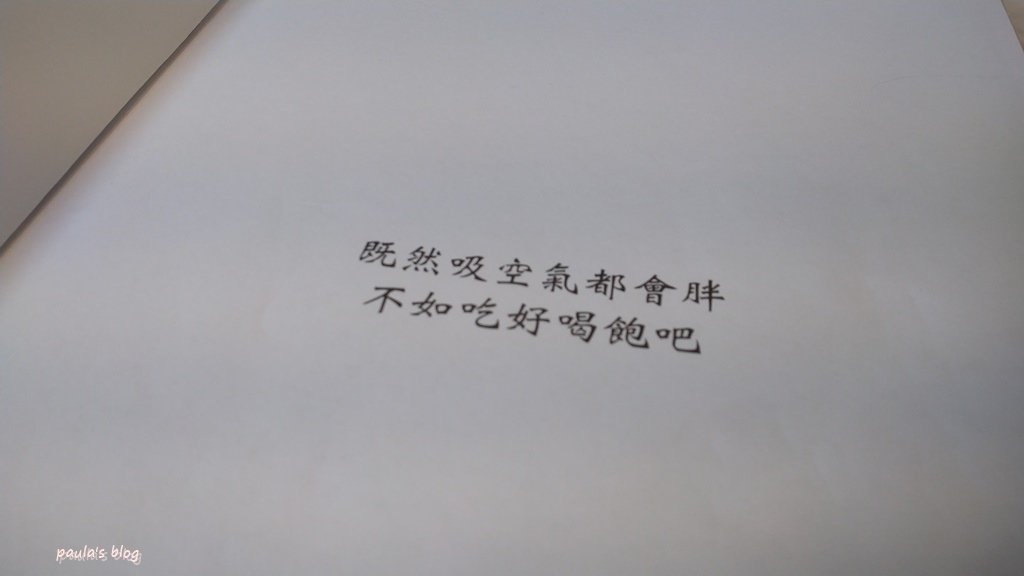 既然吸空氣都會胖
不如吃好喝飽吧
paula's blog